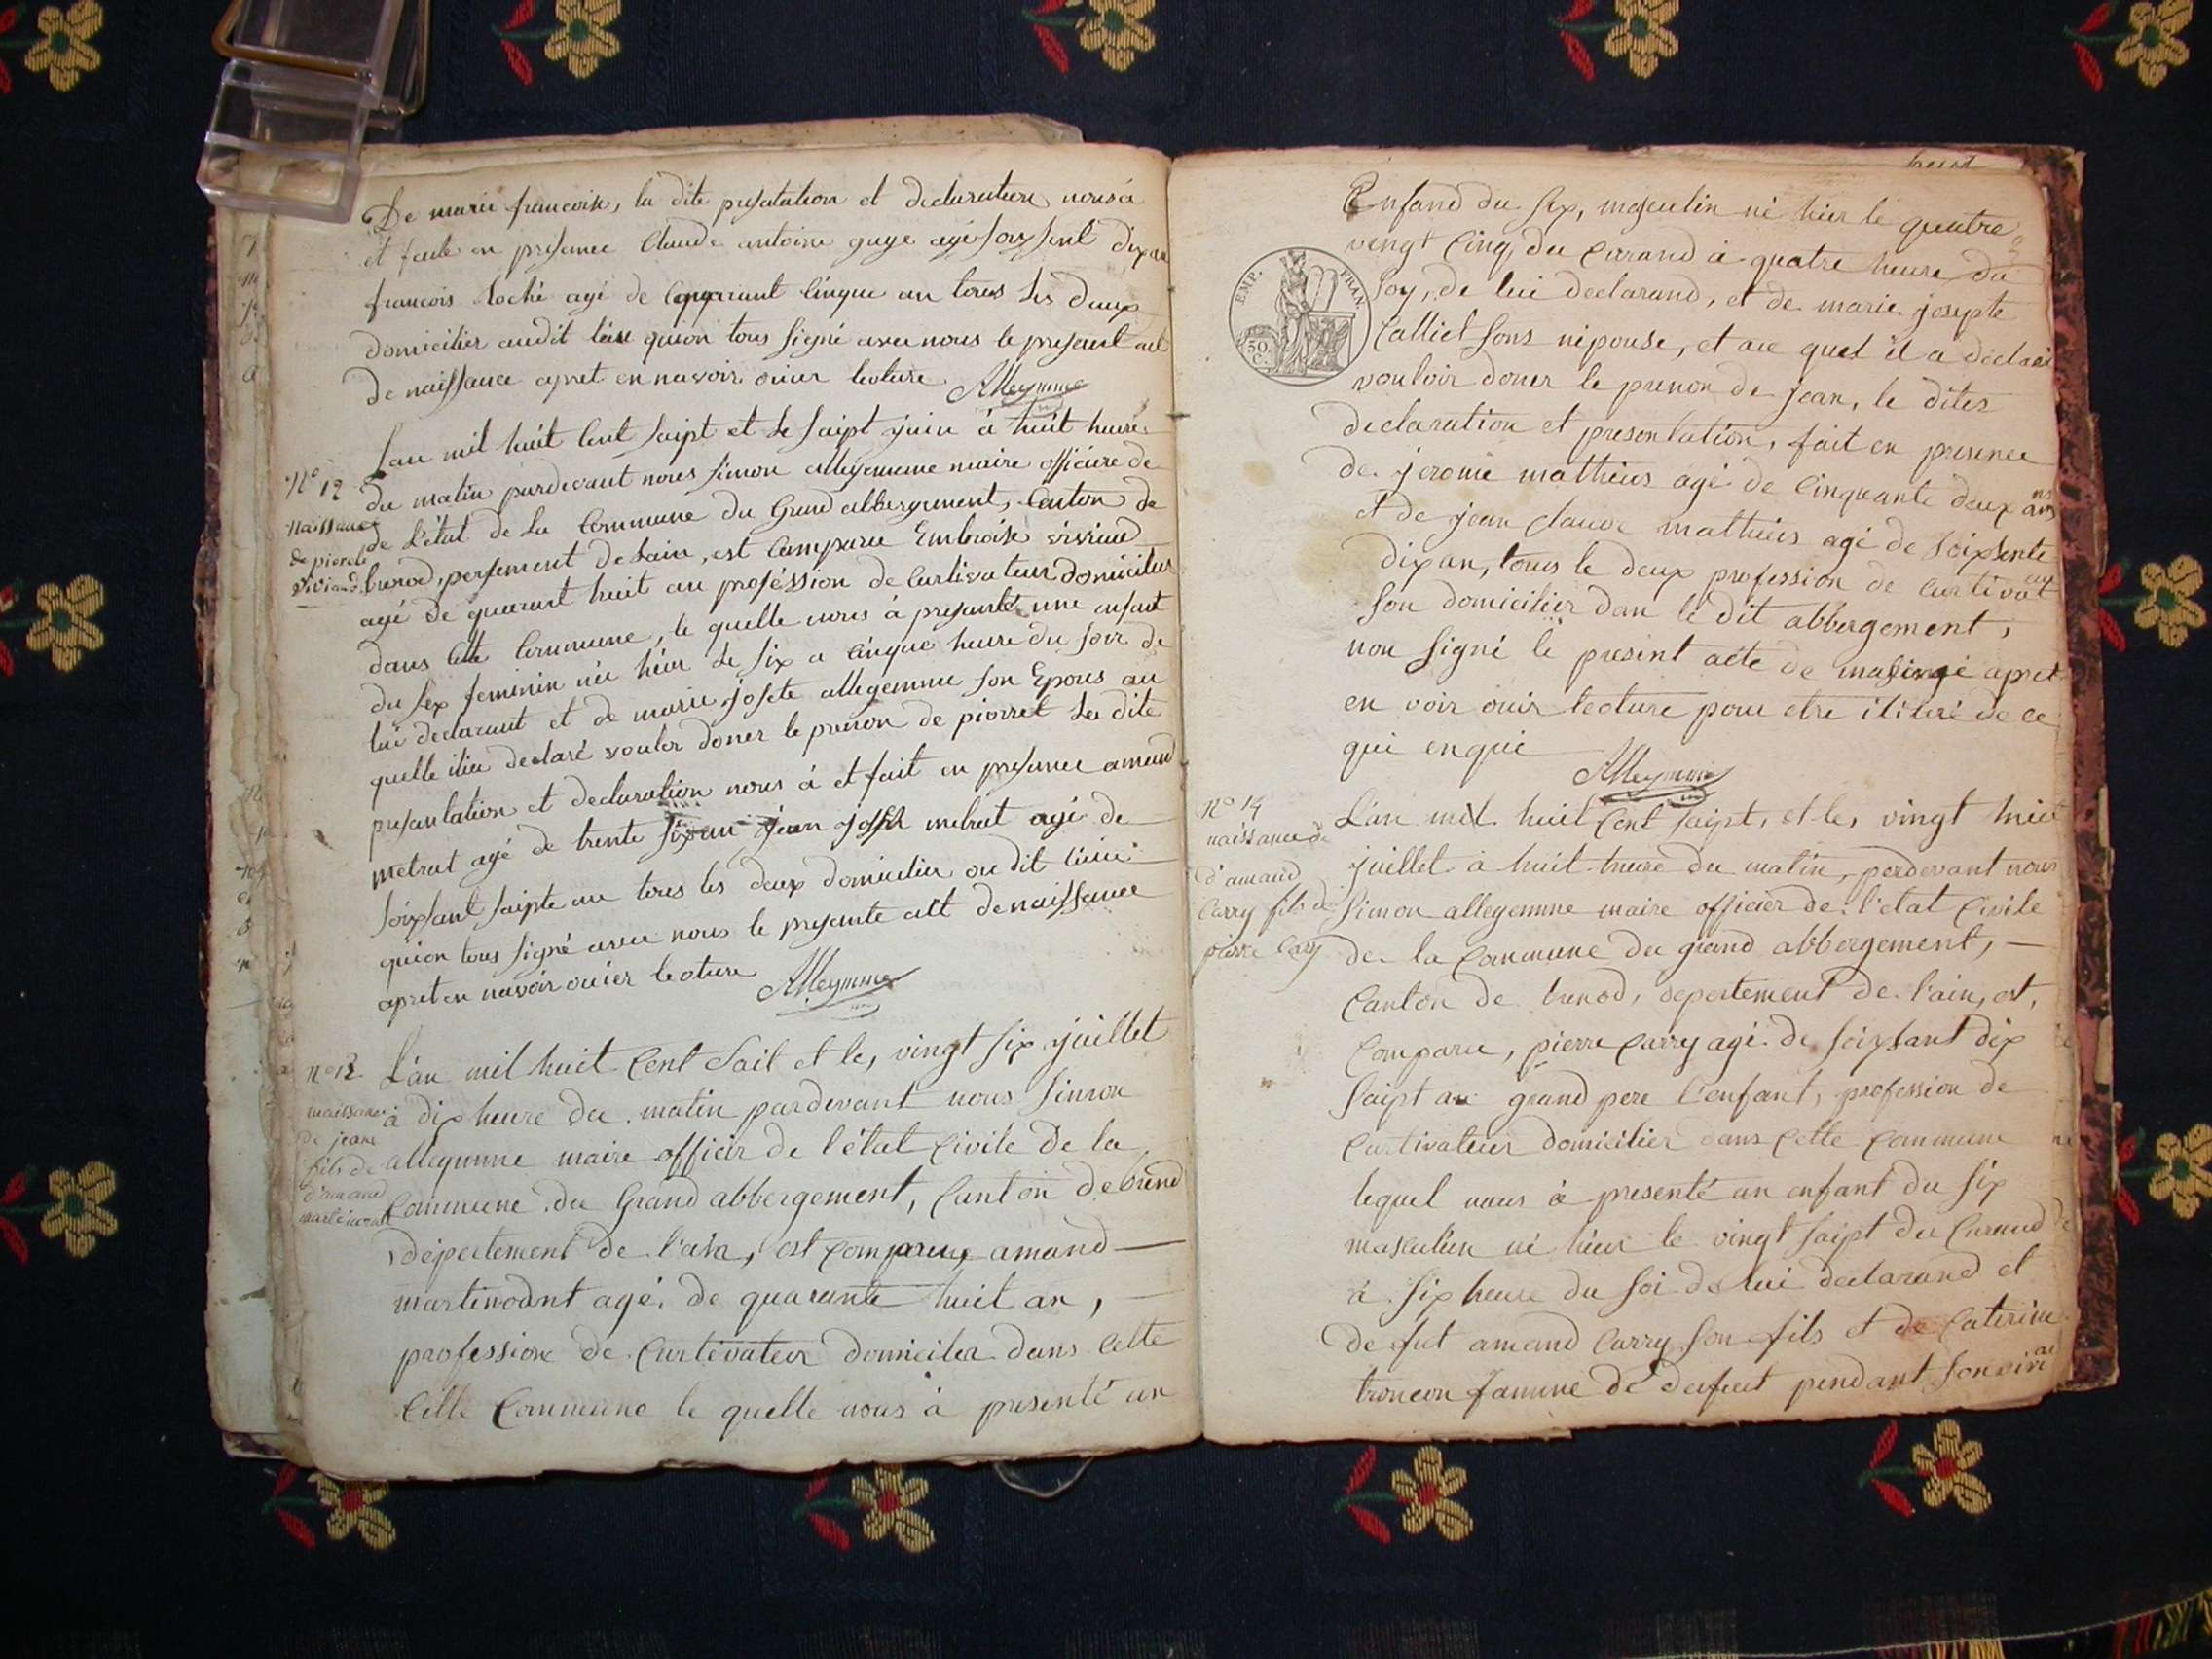 De marie francoise, la dite presatation et declaration nous a
et faite en presance Claude antoine guye agé soixsent dix an
francois Loché agé de quarant cinque an tous les deux
domicilier audit lieu quion tous signé avec nous le presant act
de naissance apret en navoir ouier lecture Alleymme
N° 12
naissance
de pierete
viviand
Lan mil huit cent saipt et le saipt juin à huit heure
du matin pardevant nous simon alleyemme maire officiere de
de L'état de La Commune du Grand abbergement, Canton de
brenod, persement de Lain, est Comparu Embroise viviand
agé de quarant huit an proféssion de Curtivateur domicilier
dans cette Commune, le quelle nous à presanté une anfant
du sex feminin née hier Le six a cinque heure du soir de
lui declarant et de marie josete allegemme son Epous au
quelle ilia declaré voulor doner le prenon de pierret La dite
presantation et declaration nous à et fait en presance amand
metrat agé de trente six an jean joseh metrat agé de
soixsant saipte an tous les deux domicilier ou dit lieu
quion tous signé avec nous le presante act de naissance
apret en navoir ouier lecture Alleymme
n° 13
naissance
de jean
fils de
d'amand
martinant
L'an mil huit Cent Sait et le, vingt six juillet
à dix heure du matin pardevant nous Simon
allegmme maire officier de l'état Civile de la
Commune du Grand abbergement, Canton de brend
département de l'ain, est comparu, amand
martinodnt agé de quarante huit an,
profession de Curtivateur domicilier dans cette
Cille Commune le quelle nous à presenté un
Enfand du sex, masculin né hier le quatre
vingt Cinq, du Corand à quatre heure du
Soy, de lui declarand, et de marie josepte
Calliet sons népouse, et au quel il a déclaré
vouloir doner le prenon de jean, le dites
declaration et presentation, fait en presence
de jerome mathieus agé de Cinquante deux ans
et de jean claude mathieus agé de soixsente
dix an, tous le deux profession de curtivat
son domicilier dan le dit abbergement,
non signé le present acte de apret
en voir ouir lecture pour etre de ce
qui enqui Alleymme
EMP. FRAN.
50 C.
N° 14
naissance de
d'amand
Carry fils de
pierre Carry
L'an mil huit Cent saipt, et le, vingt huit
juillet à huit heure du matin, perdevant nous
Simon allegemme maire officier de l'etat Civile
de la Commune du grand abbergement,
Canton de brenod, depertement de l'ain, est,
Comparu, pierre Carry agé de soixsant dix
saipt an grand pere l'enfant, profession de
Curtivateur domicilier dans cette Commune
lequel nous à presenté un enfant du six
masculien né hieur le vingt saipt du Curand
à six heure du soi de lui declarand et
de fut amand Carry son fils et de Caterine
troncon famme de defuet pendant son